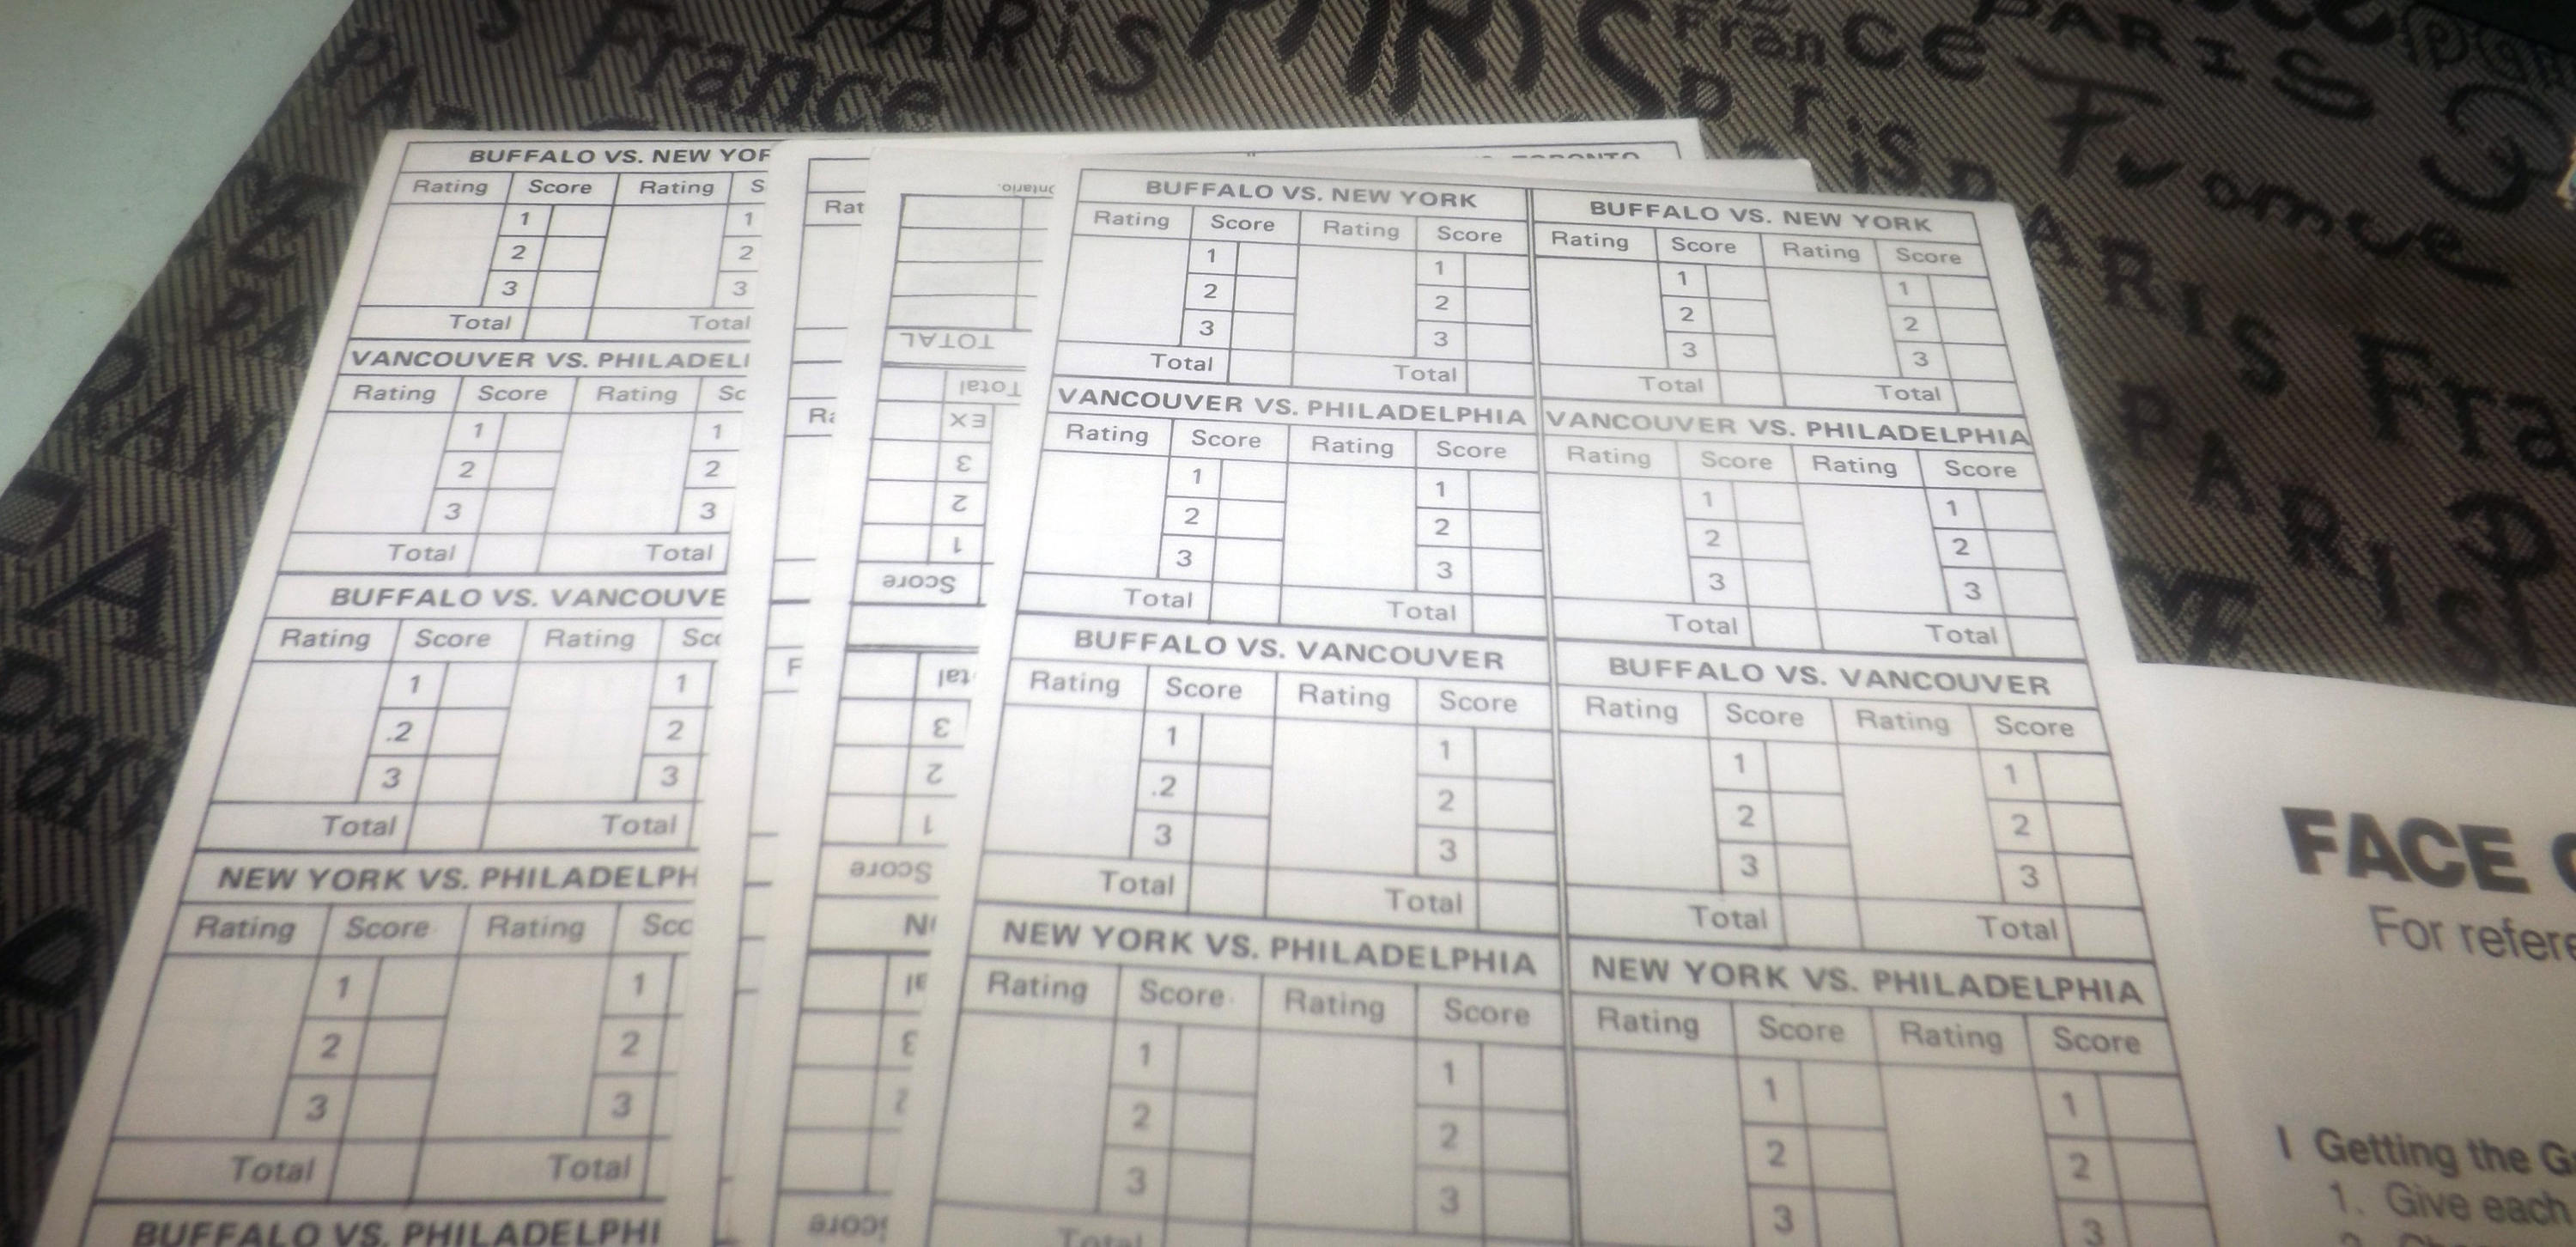 PARIS
France
PARIS
France
Paris
PARIS
France
BUFFALO VS. NEW YOR
Rating Score Rating S
1 1
2 2
3 3
Total Total
VANCOUVER VS. PHILADEL
Rating Score Rating Sc
1 1
2 2
3 3
Total Total
BUFFALO VS. VANCOUVE
Rating Score Rating Sco
1 1
.2 2
3 3
Total Total
NEW YORK VS. PHILADELPH
Rating Score Rating Sco
1 1
2 2
3 3
Total Total
BUFFALO VS. PHILADELPHI
Rat
Ra
Ontario.
TOTAL
Total
EX
3
2
1
Score
tal
3
2
1
Score
al
3
2
Score
TORONTO
BUFFALO VS. NEW YORK
Rating Score Rating Score
1 1
2 2
3 3
Total Total
VANCOUVER VS. PHILADELPHIA
Rating Score Rating Score
1 1
2 2
3 3
Total Total
BUFFALO VS. VANCOUVER
Rating Score Rating Score
1 1
.2 2
3 3
Total Total
NEW YORK VS. PHILADELPHIA
Rating Score Rating Score
1 1
2 2
3 3
Total
BUFFALO VS. NEW YORK
Rating Score Rating Score
1 1
2 2
3 3
Total Total
VANCOUVER VS. PHILADELPHIA
Rating Score Rating Score
1 1
2 2
3 3
Total Total
BUFFALO VS. VANCOUVER
Rating Score Rating Score
1 1
2 2
3 3
Total Total
NEW YORK VS. PHILADELPHIA
Rating Score Rating Score
1 1
2 2
3 3
FACE
For refere
I Getting the G
1. Give each